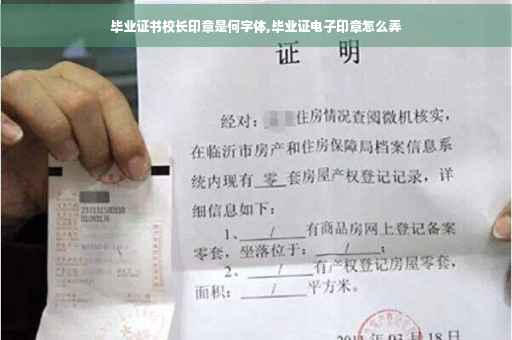 毕业证书校长印章是何字体,毕业证电子印章怎么弄
证 明
经对：住房情况查阅微机核实，
在临沂市房产和住房保障局档案信息系
统内现有 零 套房屋产权登记记录，详
细信息如下：
1、 / 有商品房网上登记备案
零套，坐落位于： / ；
2、 / 有产权登记房屋零套，
面积： / 平方米。
03月18日